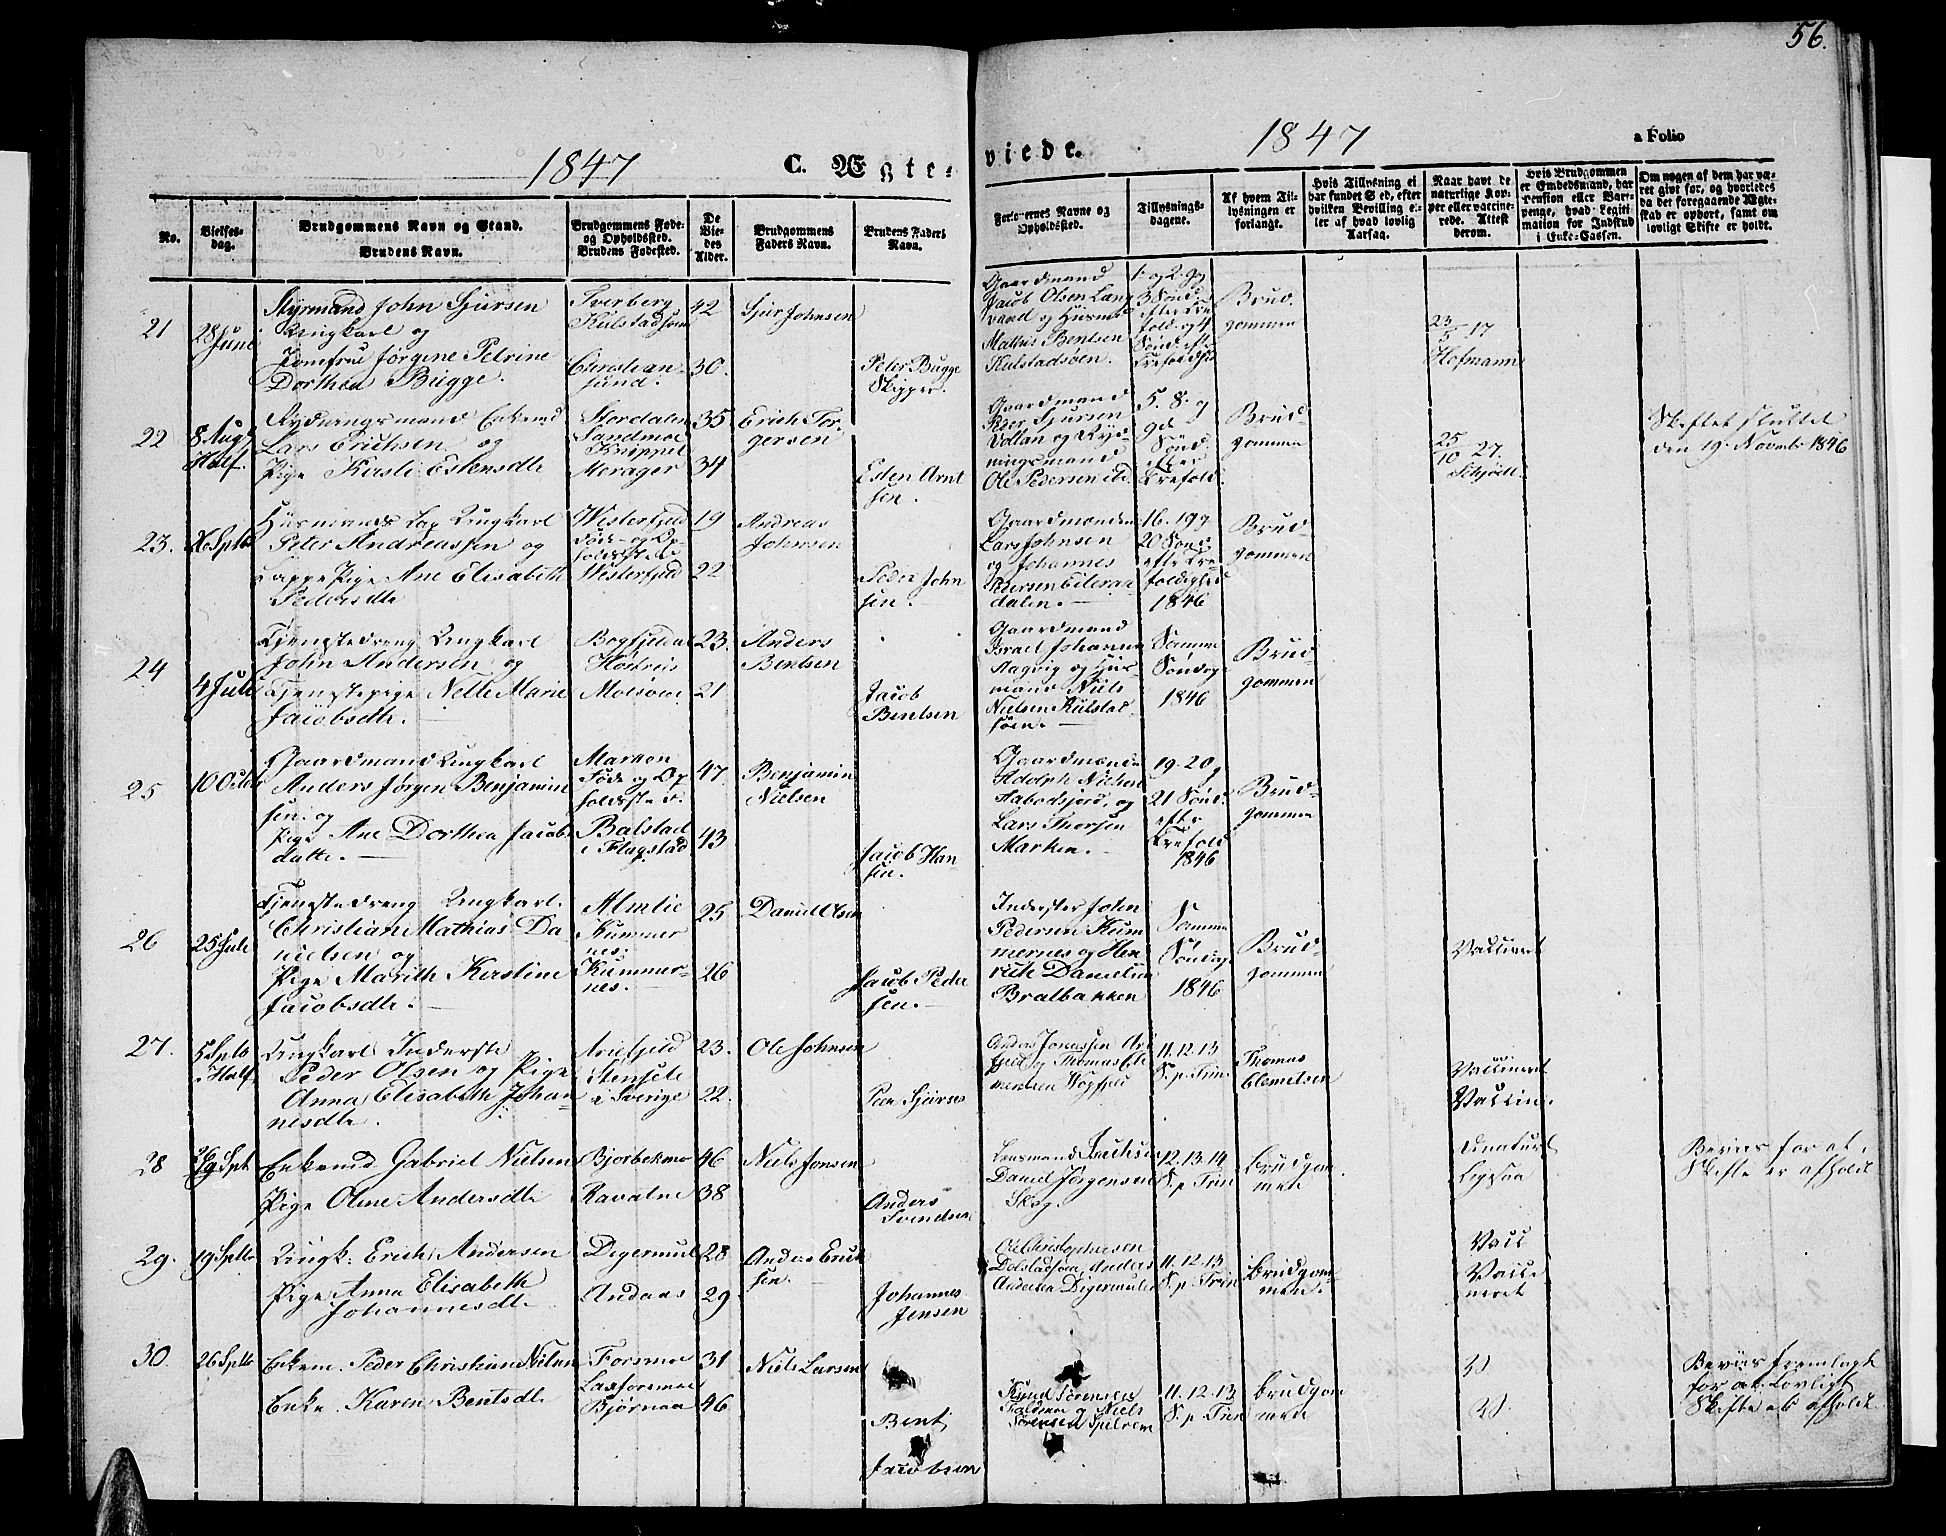 56.
1847
C. Ægte-
viede.
1847
a Folio
No.
Vielses-
dag.
Brudgommens Navn og Stand.
Brudens Navn.
Brudgommens Føde-
og Opholdssted.
Brudens Fødested.
De
Vie-
des
Alder.
Brudgommens
Faders Navn.
Brudens Faders
Navn.
Forlovernes Navne og
Opholdssted.
Tillysnings-
dagene.
Af hvem Til-
lysningen er
forlangt.
Hvis Tillysning ei
har fundet Sted, efter
hvilken Bevilling el-
ler af hvad lovlig
Aarsag.
Naar havt de
naturlige Kop-
per eller vaccine-
rede. Attest
derom.
Hvis Brudgommen
er Embedsmand, har
Pension eller Var-
penge, hvad Legiti-
mation for Indskud
i Enke-Cassen.
Om nogen af dem har væ-
ret gift før, og hvorledes
da det foregaaende Ægte-
skab er ophørt, samt om
lovligt Skifte er holdt.
21
28 Juni
Styrmand John Sjursen
Ungkarl og
Jomfrue Jørgine Petrine
Dorthea Bugge.
Tverberg
Kulstadsjøen
Christian-
sund.
42
30.
Sjur Johnsen
Peter Bugge
Skipper.
Gaardmand
Jacob Olsen Lang
vand og Husmd
Mathis Bentsen
Kulstadsøen.
1. og 2. og
3 Sønd
efter Tre
fold. og 4
Sønd. eft
Trefoldgh
Brud-
gommen
23/5 17
Hofmann
22
8 Aug
Half.
Rydningsmand Enkemd
Lars Erichsen og
Pige Kirsti Estensdtr
Stordalen
Sandmoe
Knippel
Morager
35
34
Erich Tor-
gersen
Esten Arnt
sen.
Gaardmand
Peder Sjursen
Voltan og Ryd-
ningsmand
Ole Pedersen ibd.
5. 8. og
9d
Sønd
efter
Trefold.
Brud-
gommen
25/10 27.
Schjøtt.
Skiftet sluttet
den 19. Novembr 1846
23.
26 Sptb
Husmands Lap Ungkarl
Peter Andreassen og
Lappe Pige Ane Elisabeth
Pedersdtr
Westerfjeld
Føde- og Op-
holdssted
Westerfjeld
19
22
Andreas
Johnsen
Peder John
sen.
Gaardmænden
Lars Johnsen
og Johannes
Pedersen Eiteraa
dalen.
16. 19 og
20 Sønd
efter Tre
foldighed
1846
Brud-
gommen
24
4 Juli
Tjenestedreng Ungkarl
John Andersen og
Tjenestepige Nelle Marie
Jacobsdtr.
Bogfjeldal
Høstnis
Molsøen
23.
21
Anders
Bentsen
Jacob
Bentsen
Gaardmand
Israel Johanne
Aagvig og Hus
mand Niels
Nielsen Kulstad
søen.
Samme
Søndage
1846
Brud-
gommen
25
10 Octbr
Gaardmand Ungkarl
Anders Jørgen Benjamin
sen og
Pige Ane Dorthea Jacobs
datter.
Marken
Føde og Op
holdssted.
Balstad
i Flagstad
47.
43
Benjamin
Nielsen
Jacob Han
sen.
Gaardmænden
Adolph Nielsen
Habodsjord, og
Lars Thorsen
Marken.
19. 20 og
21 Sønd.
efter
Trefold
1846
Brud-
gommen
26
25 Juli
Tjenestedreng Ungkarl.
Christian Mathias Da
nielsen og
Pige Marith Kirstine
Jacobsdtr.
Almlie
Kummer
nes.
Kummer-
nes.
25
26
Daniel Olsen
Jacob Peder
sen.
Inderster John
Pedersen Kum
mernes og Hen
rich Danielsen
Bralbakken
Samme
Søndage
1846
Brud-
gommen
Vaccineret
27.
5 Sptb
i Half.
Ungkarl Inderste
Peder Olsen og Pige
Anna Elisabeth Johan
nesdtr.
Ariefjeld
Stensele
i Sverige
23.
22.
Ole Johnsen
Peer Sjursen
Anders Jonassen Ari
fjeld og Thomas Cle
mensen Vopfjeld
11. 12. 13
S. p. Trin.
Thomas
Clemetsen
Vaccineret
Vaccine.
28
Enkemd Gabriel Nielsen
Pige Oline Andersdtr
Bjorbekmo
Ravatne
46
38
Niels Jonsen
Anders
Svendsen
Lensmand
Daniel Jørgensen
Skog.
12. 13. 14
S. p Trin
Brudgom
men
Bevis for at
Skifte er afholdt
29.
19 Sptb
Ungk: Erich Andersen
Pige Anna Elisabeth
Johannesdtr.
Digermul
Andaas
28
29
Anders Erich
sen.
Johannes
Jensen
Ole Christophersen
Dolstadsøen, Anders
Andersen Digermulen
11. 12. 13
S. p. Trin
Brudgom-
men.
Vacc
Vacci
neret
30.
26 Sptb
Enkem. Peder Christian Nielsen
Enke. Karen Bentsdtr
Forsmoe
Laxforsmoe
Bjørnaa
31
46
Niels Larsen
Bent
Jacobsen
Knud Sørensen
Sørensen Spelrem
11. 12. 13
S. p. Trin
Brudgom
men
Beviis fremlagt
for at lovligt
Skifte er afholdt